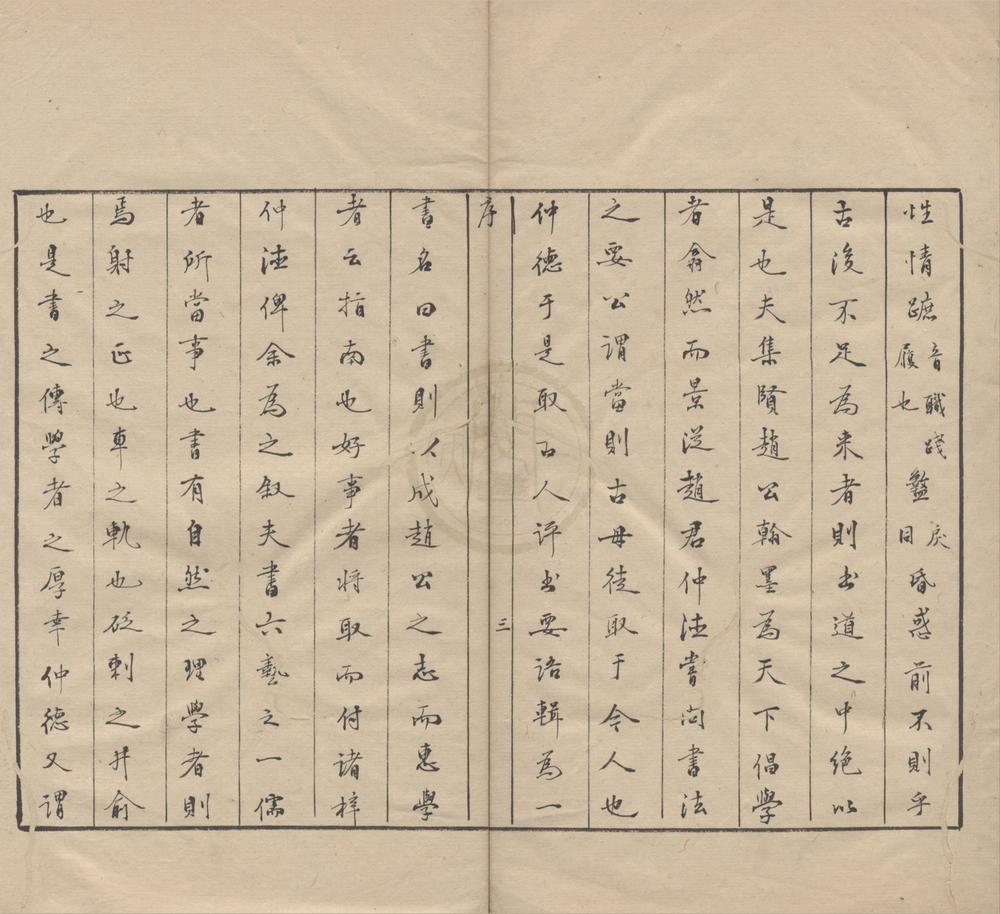 性情蹠音職踐履也盭同戾昏惑前不則乎
古後不足為来者則书道之中绝以
是也夫集賢趙公翰墨為天下倡學
者翕然而景從趙君仲德嘗问書法
之要公謂當則古毋徒取于今人也
仲德于是取古人评书要语輯為一
序
三
書名曰書則以成趙公之志而惠學
者云指南也好事者将取而付诸梓
仲德俾余為之叙夫書六藝之一儒
者所當事也書有自然之理學者則
焉射之正也車之軌也砭刺之井俞
也是書之傳學者之厚幸仲德又謂